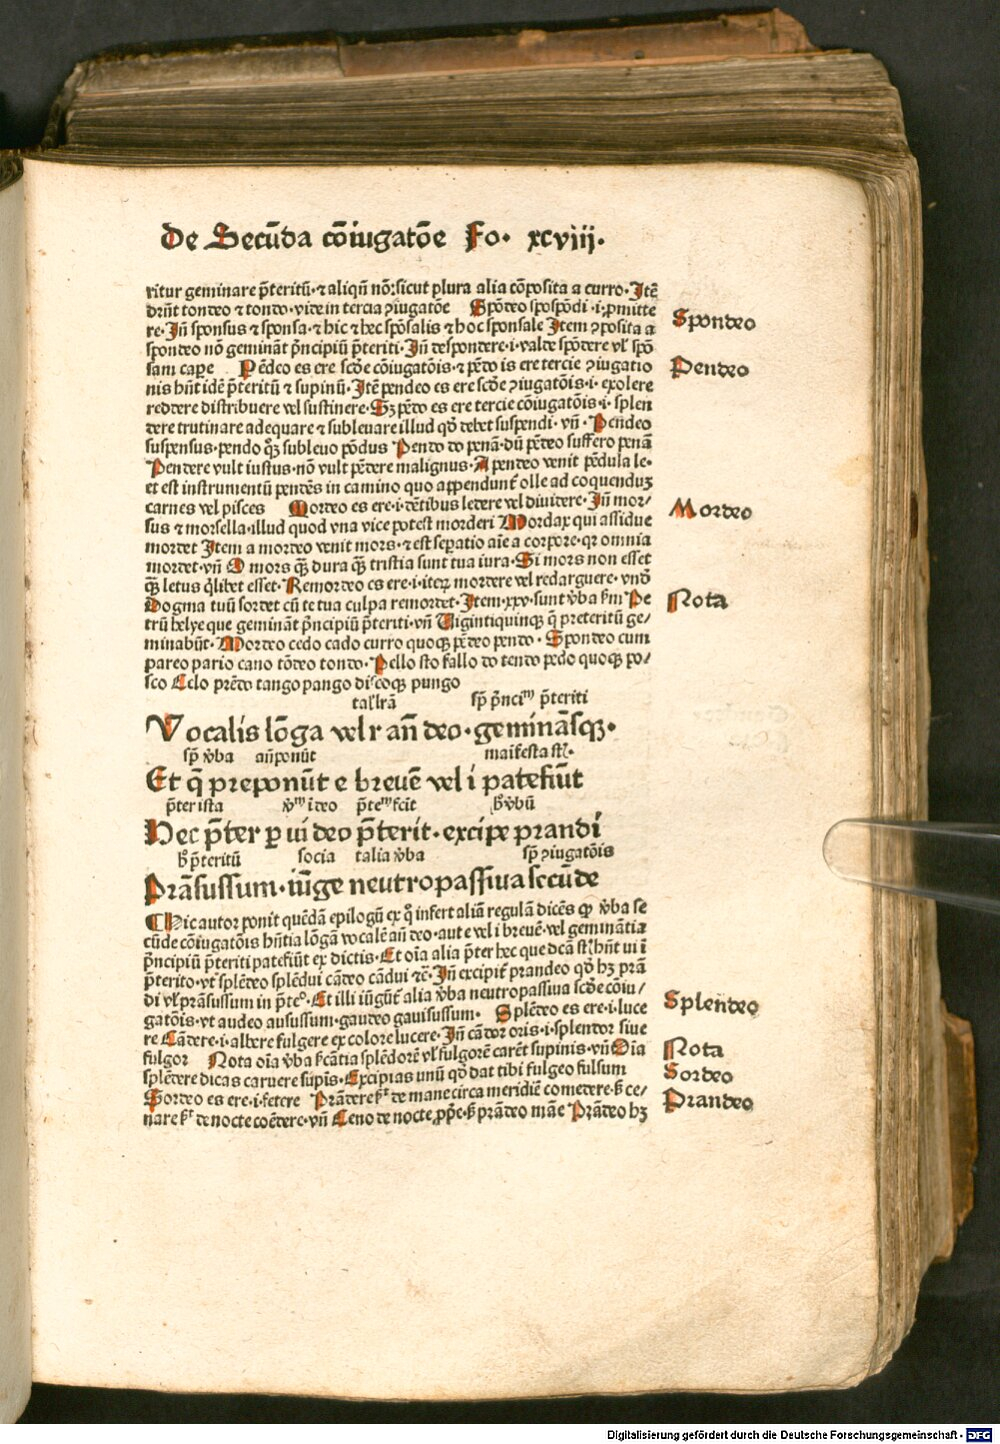 De Secūda cōiugatōe Fo. xcviij.
ritur geminare p̄teritū·⁊ aliqñ nō: sicut plura alia cōposita a curro· Itē
dr̄nt tondeo ⁊ tondo· vide in tercia ꝯiugatōe Spōdeo spospōdi ·i· ꝓmitte
re· Iñ sponsus ⁊ sponsa·⁊ hic ⁊ hec spōsalis ⁊ hoc sponsale Item ꝯposita a
Spondeo
spondeo nō gemināt p̄ncipiū p̄teriti· Iñ despondere·i·valde spōdere vl̓ spō
sam cape Pēdeo es ere scd̓e cōiugatōis·⁊ pēdo is ere tercie ꝯiugatio
Pendeo
nis hn̄t idē p̄teritū ⁊ supinū· Itē pendeo es ere scd̓e ꝯiugatōis·i· exolere
reddere distribuere vel sustinere· Sꝫ pēdo es ere tercie cōiugatōis·i· splen
dere trutinare adequare ⁊ subleuare illud qd̓ debet suspendi· vñ· Pendeo
suspensus·pendo qꝫ subleuo pōdus Pendo do penā·dū pēdeo suffero penā
Pendere vult iustus·nō vult pēdere malignus· A pendeo venit pēdula le·
et est instrumentū pendēs in camino quo appendunt̄ olle ad coquenduꝫ
carnes vel pisces Mordeo es ere·i·dētibus ledere vel diuidere· Iñ mor/
Mordeo
sus ⁊ morsella·illud quod vna vice potest morderi Mordax qui assidue
mordet Item a mordeo venit mors·⁊ est sep̄atio aīe a corpore·qr omnia
mordet·vñ O mors qꝫ dura qꝫ tristia sunt tua iura· Si mors non esset
qꝫ letus q̄libet esset· Remordeo es ere·i·iteꝝ mordere vel redarguere· vnd̓
Dogma tuū sordet cū te tua culpa remordet· Item·xxv·sunt v̓ba s̄m Pe
Nota
trū helye que gemināt p̄ncipiū p̄teriti·vñ Uigintiquinqꝫ q̄ preteritū ge/
minabūt· Mordeo cedo cado curro quoqꝫ pēdeo pendo· Spondeo cum
pareo pario cano tōdeo tondo· Pello sto fallo do tendo pedo quoqꝫ po/
sco Celo prēdo tango pango discoqꝫ pungo
tal̓ lrā sp̄ p̄nciᵐ p̄teriti
Vocalis lōga vel r añ deo·geminās qꝫ·
sp̄ v̓ba añponūt maīfesta st̓·
Et q̄ preponūt e breuē vel i patefiūt
p̄ter ista v̓ᵐ īdeo p̄teᵐ fcīt h̓ v̓bū
Hec p̄ter ꝑ ui deo p̄terit·excipe prandi
h̓ p̄teritū socia talia v̓ba sp̄ ꝯiugatōis
Prāsussum·iūge neutropassiua secūde
Hic autor ponit quēdā epilogū ex q̄ infert aliā regulā dicēs ꝙ v̓ba se
cūde cōiugatōis hn̄tia lōgā vocalē añ deo·aut e vel i breuē·vel geminātia
p̄ncipiū p̄teriti patefiūt ex dictis· Et oīa alia p̄ter hec que dcā st̓ hn̄t ui ī
p̄terito·vt splēdeo splēdui cādeo cādui ⁊c̄· Iñ excipit̄ prandeo qd̓ hꝫ prā
di vl̓ prāsussum in p̄tᵒ· Et illi iūgūt̄ alia v̓ba neutropassiua scd̓e cōiu/
gatōis·vt audeo ausussum·gaudeo gauisussum· Splēdeo es ere·i·luce
Splendeo
re Cādere·i·albere fulgere ex colore lucere· Iñ cādor oris·i·splendor siue
fulgor Nota oīa v̓ba s̄icātia splēdorē vl̓ fulgorē carēt supinis·vñ Oīa
Nota
splēdere dicas caruere supīs· Excipias unū qd̓ dat tibi fulgeo fulsum
Sordeo es ere·i·fetere Prādere s̄ᵗ de mane circa meridiē comedere·s̄ ce/
Sordeo
nare s̄ᵗ de nocte coēdere·vñ Ceno de nocte ꝓp̄e·s̄ prādeo māe Prādeo hꝫ
Prandeo
Digitalisierung gefördert durch die Deutsche Forschungsgemeinschaft · DFG